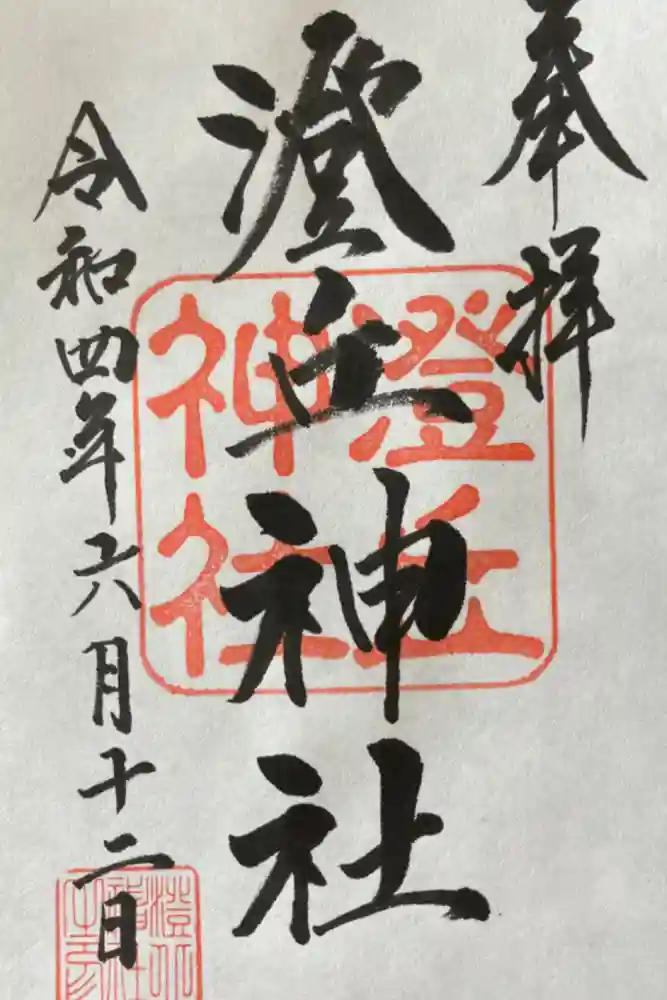 奉拝
澄丘神社
令和四年六月十二日
澄丘
神社